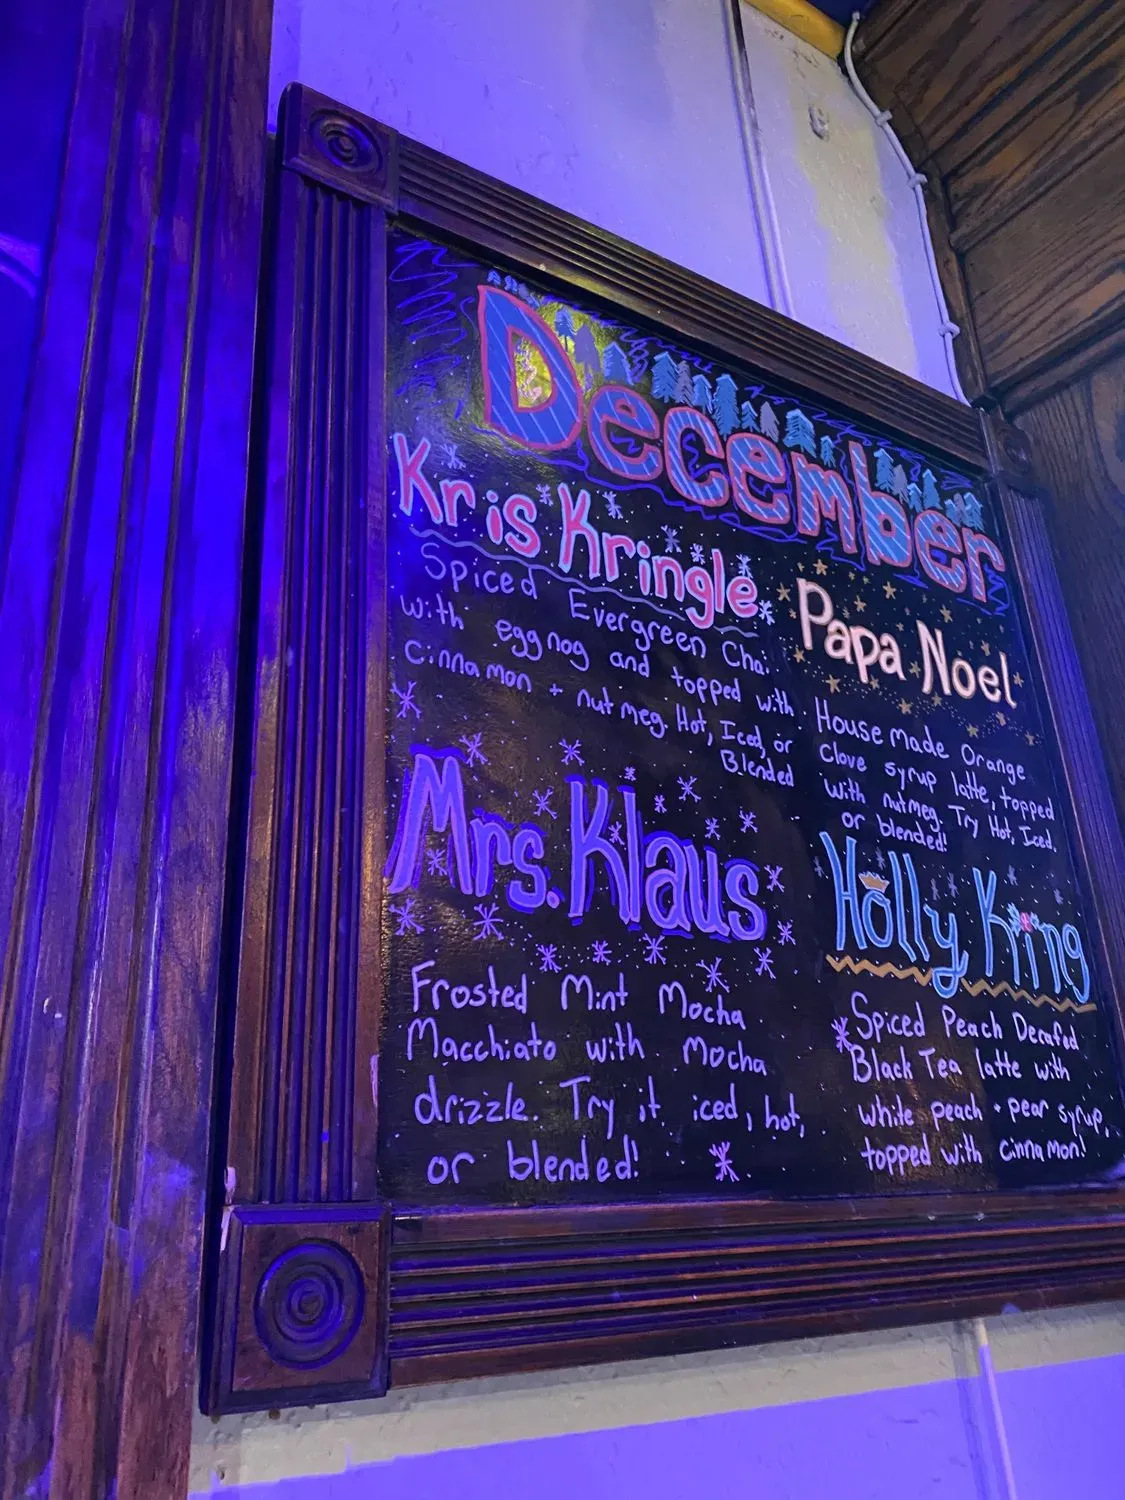 December
Kris Kringle
Spiced Evergreen Chai
with eggnog and topped with
cinnamon + nutmeg. Hot, Iced, or
Blended
Papa Noel
House made Orange
Clove syrup latte, topped
with nutmeg. Try Hot, Iced.
or blended!
Mrs. Klaus
Frosted Mint Mocha
Macchiato with Mocha
drizzle. Try it iced, hot,
or blended!
Holly King
Spiced Peach Decafed
Black Tea latte with
white peach + pear syrup,
topped with cinnamon!